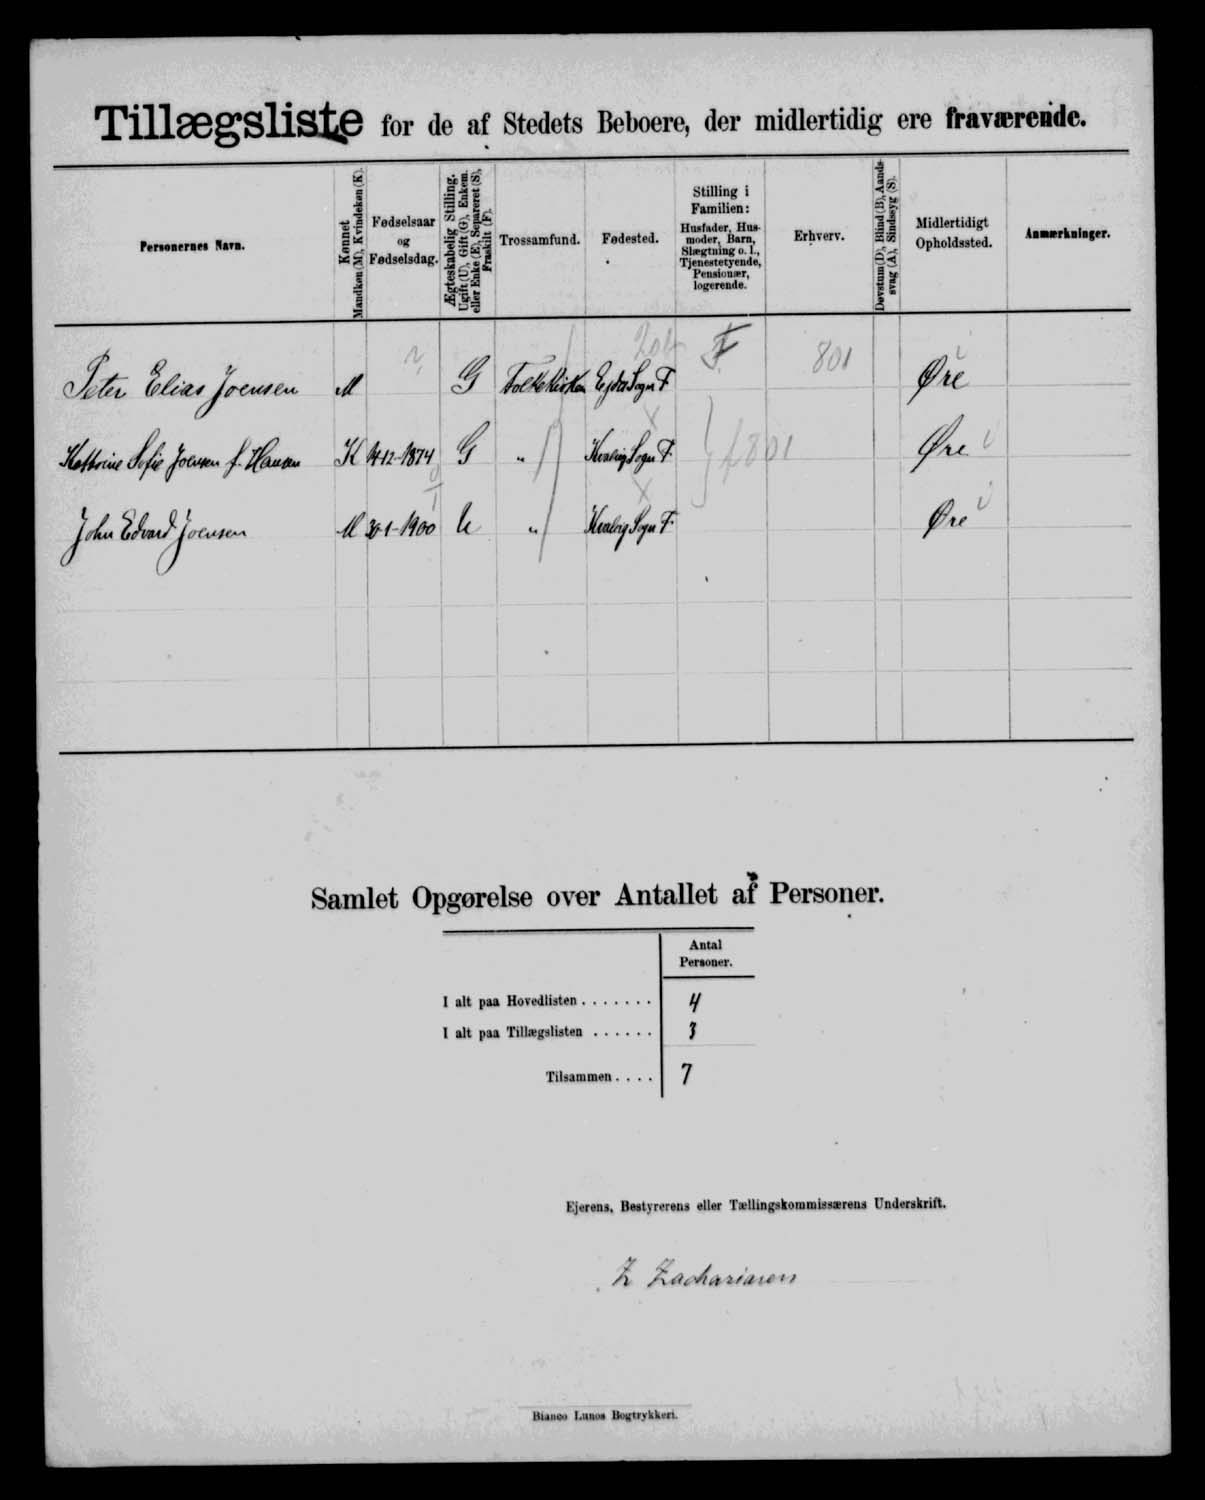 Tillægsliste for de af Stedets Beboere, der midlertidig ere fraværende.
Personernes Navn.
Kønnet
Mandkøn (M), Kvindekøn (K).
Fødselsaar
og
Fødselsdag.
Ægteskabelig Stilling.
Ugift (U), Gift (G), Enkem.
eller Enke (E), Separeret (S),
Fraskilt (F).
Trossamfund.
Fødested.
Stilling i
Familien:
Husfader, Hus-
moder, Barn,
Slægtning o. l.,
Tjenestetyende,
Pensionær,
logerende.
Erhverv.
Døvstum (D), Blind (B), Aands-
svag (A), Sindssyg (S).
Midlertidigt
Opholdssted.
Anmærkninger.
Peter Elias Joensen M ? G Folkekirken Sogn F. F 801 Øre
Kathrine Sofie Joensen f. Hansen K 14-12-1874 G " Hvalbig Sogn F. f 801 Øre
John Edvard Joensen M 30-1-1900 U " Hvalbig Sogn F. Øre
Samlet Opgørelse over Antallet af Personer.
Antal
Personer.
I alt paa Hovedlisten . . . . . . . 4
I alt paa Tillægslisten . . . . . . 3
Tilsammen . . . . 7
Ejerens, Bestyrerens eller Tællingskommissærens Underskrift.
Z Zachariasen
Bianco Lunos Bogtrykkeri.